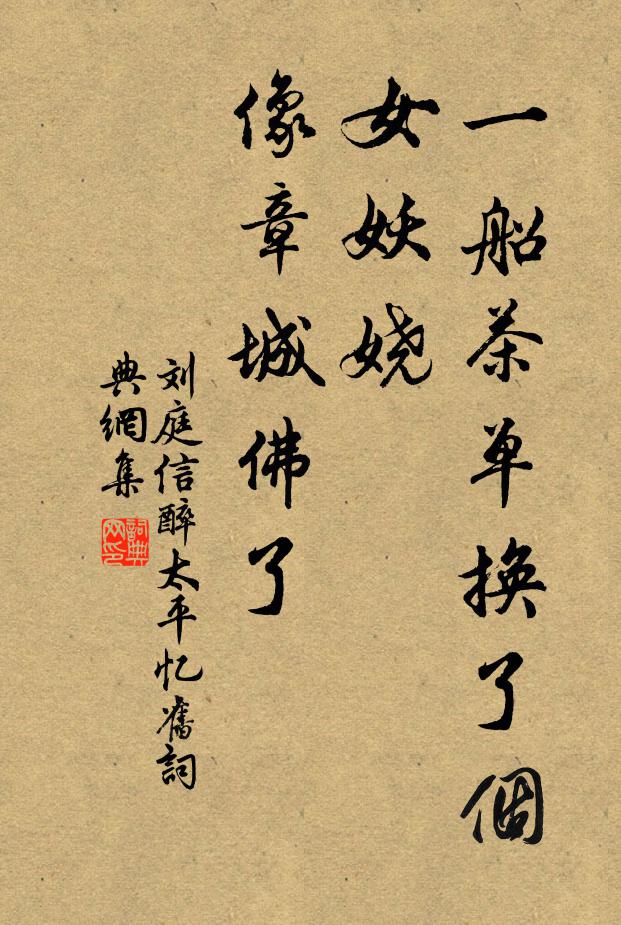 一船茶单换了個
女妖娆
像章城佛了
刘庭信醉太平忆舊詞
典網集
詞典网印